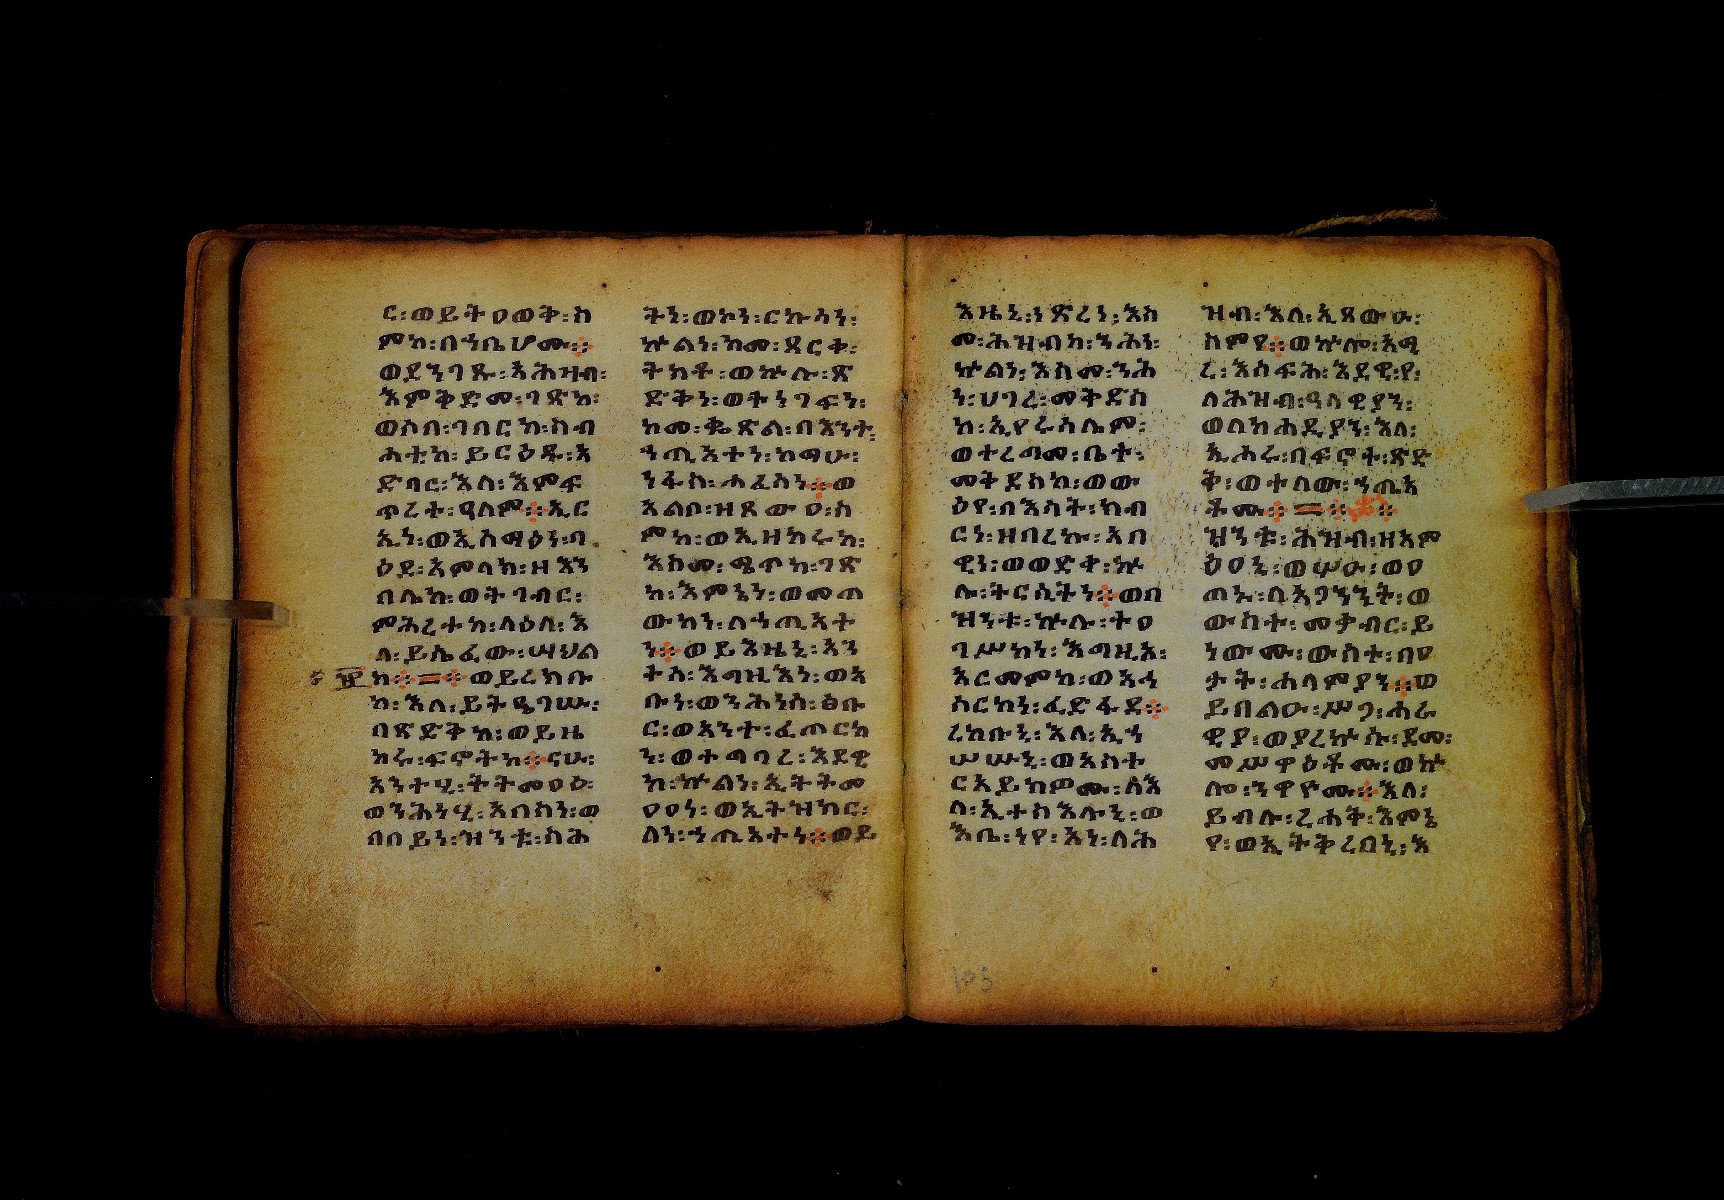 ር፡ወይትዐወቅ፡ስ
ምከ፡በኀቤሆሙ፨
ወደንገጹ፡አሕዛብ፡
እምቅድመ፡ገጽከ፡
ወሶበ፡ገበርከ፡ስብ
ሐቲከ፡ይርዕዱ፡አ
ድባር፡እለ፡እምፍ
ጥረተ፡ዓለም፨ኢር
ኢነ፡ወኢሰማዕነ፡ባ
ዕደ፡አምላከ፡ዘእን
በሌከ፡ወትገብር፡
ምሕረተከ፡ላዕለ፡እ
ለ፡ይሴፈው፡ሣህል
ከ፨=፨ወይረክቡ
ከ፡እለ፡ይትዔገሡ፡
በጽድቅከ፡ወይዜ
ከሩ፡ፍኖትከ፨ናሁ፡
አንተሂ፡ትትመዐዕ፡
ወንሕነሂ፡አበስነ፡ወ
በበይነ፡ዝንቱ፡ስሕ
ትነ፡ወኮነ፡ርኩሳነ፡
ኵልነ፡ከመ፡ጸርቀ፡
ትክቶ፡ወኵሉ፡ጽ
ድቅነ፡ወትነገፍነ፡
ከመ፡ቈጽል፡በእንተ፡
ኀጢአተነ፡ከማሁ፡
ነፋስ፡ሐፈሰነ፨ወ
አልቦ፡ዘጸውዐ፡ስ
ምከ፡ወኢዘከሩከ፡
እስመ፡ሜጥከ፡ገጽ
ከ፡እምኔነ፡ወመጠ
ውከነ፡ለኀጢአት
ነ፨ወይእዜኒ፡አን
ተሰ፡እግዚእነ፡ወአ
ቡነ፡ወንሕነሰ፡ፅቡ
ር፡ወአንተ፡ፈጠርከ
ነ፡ወተግባረ፡እደዊ
ከ፡ኵልነ፡ኢትትመ
ዐዐነ፡ወኢትዝከር፡
ለነ፡ኀጢአተነ፨ወይ
እዜኒ፡ነጽረነ፡እስ
መ፡ሕዝብከ፡ንሕነ፡
ኵልነ፡እስመ፡ንሕ
ነ፡ሀገረ፡መቅደስ
ከ፡ኢየሩሳሌም፡
ወተረግመ፡ቤተ፡
መቅደስከ፡ወው
ዕየ፡በእሳት፡ክብ
ርነ፡ዘባረኩ፡አበ
ዊነ፡ወወድቀ፡ኵ
ሉ፡ትርሲትነ፨ወበ
ዝንቱ፡ኵሉ፡ተዐ
ገሥከነ፡እግዚአ፡
አርመምከ፡ወአኅ
ሰርከነ፡ፈድፋደ፨
ረከቡኒ፡እለ፡ኢኀ
ሠሡኒ፡ወአስተ
ርአይክዎሙ፡ለእ
ለ፡ኢተስእሉኒ፡ወ
እቤ፡ነየ፡አነ፡ለሕ
ዝብ፡እለ፡ኢጸውዑ፡
ስምየ፨ወኵሎ፡አሚ
ረ፡እሰፍሕ፡እደዊየ፡
ለሕዝብ፡ዓላዊያን፡
ወለከሐዲያን፡እለ፡
ኢሖሩ፡በፍኖተ፡ጽድ
ቅ፡ወተለው፡ኀጢአ
ቶሙ፨=፨
ዝንቱ፡ሕዝብ፡ዘአም
ዕዐኒ፡ወሦዑ፡ወዐ
ጠኑ፡ለአጋንንት፡ወ
ውስተ፡መቃብር፡ይ
ነውሙ፡ውስተ፡በዐ
ታት፡ሐላምያን፨ወ
ይበልዑ፡ሥጋ፡ሐራ
ዊያ፡ወያረኵሱ፡ደመ፡
መሥዋዕቶሙ፡ወኵ
ሎ፡ንዋዮሙ፨እለ፡
ይብሉ፡ረሐቅ፡እምኔ
የ፡ወኢትቅረበኒ፡እ
105